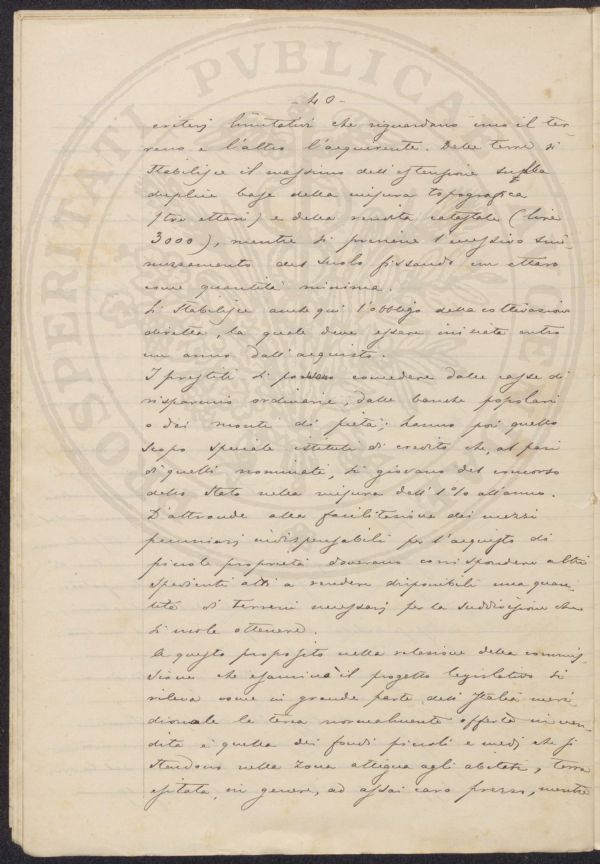 - 40 -
criteri limitativi che riguardano uno il ter-
reno e l'altro l'acquirente. Delle terre si
stabilisce il massimo dell'estensione sulla
duplice base della misura topografica
(tre ettari) e della rendita catastale (lire
3000), mentre si previene l'eccessivo smi-
nuzzamento del suolo fissando un ettaro
come quantità minima.
Si stabilisce anche qui l'obbligo della coltivazione
diretta, la quale deve essere iniziata entro
un anno dall'acquisto.
I prestiti si possono concedere dalle casse di
risparmio ordinarie, dalle banche popolari
o dai monti di pietà; hanno poi questo
scopo speciale istituti di credito che, al pari
di quelli nominati, si giovano del concorso
dello Stato nella misura dell'1% all'anno.
D'altronde alla facilitazione dei mezzi
pecuniari indispensabili per l'acquisto di
piccole proprietà dovevano corrispondere altri
espedienti atti a rendere disponibili una quan-
tità di terreni necessari per la suddivisione che
si vuole ottenere.
A questo proposito nella relazione della commis-
sione che esaminò il progetto legislativo si
rileva come in grande parte dell'Italia meri-
dionale la terra normalmente offerta in ven-
dita è quella dei fondi piccoli e medi che si
stendono nella zona attigua agli abitati, terra
in genere, ad assai caro prezzo, mentre
PROSPERITATI PVBLICAE